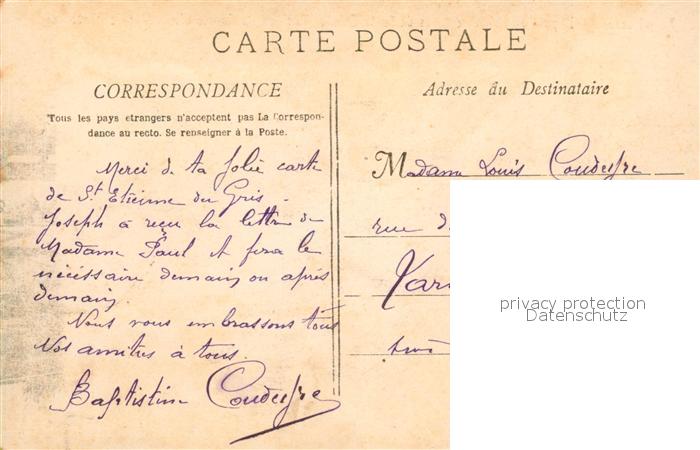 CARTE POSTALE
CORRESPONDANCE
Tous les pays etrangers n'acceptent pas La Correspon-
dance au recto. Se renseigner à la Poste.
Merci de ta jolie carte
de St Etienne du Gris.
Joseph à reçu la lettre de
Madame Paul et fera le
nécéssaire demain ou après
demain.
Nous vous embrassons tous
Nos amitiés à tous.
Baptistine
Adresse du Destinataire
Madame Louis
rue d
privacy protection
Datenschutz